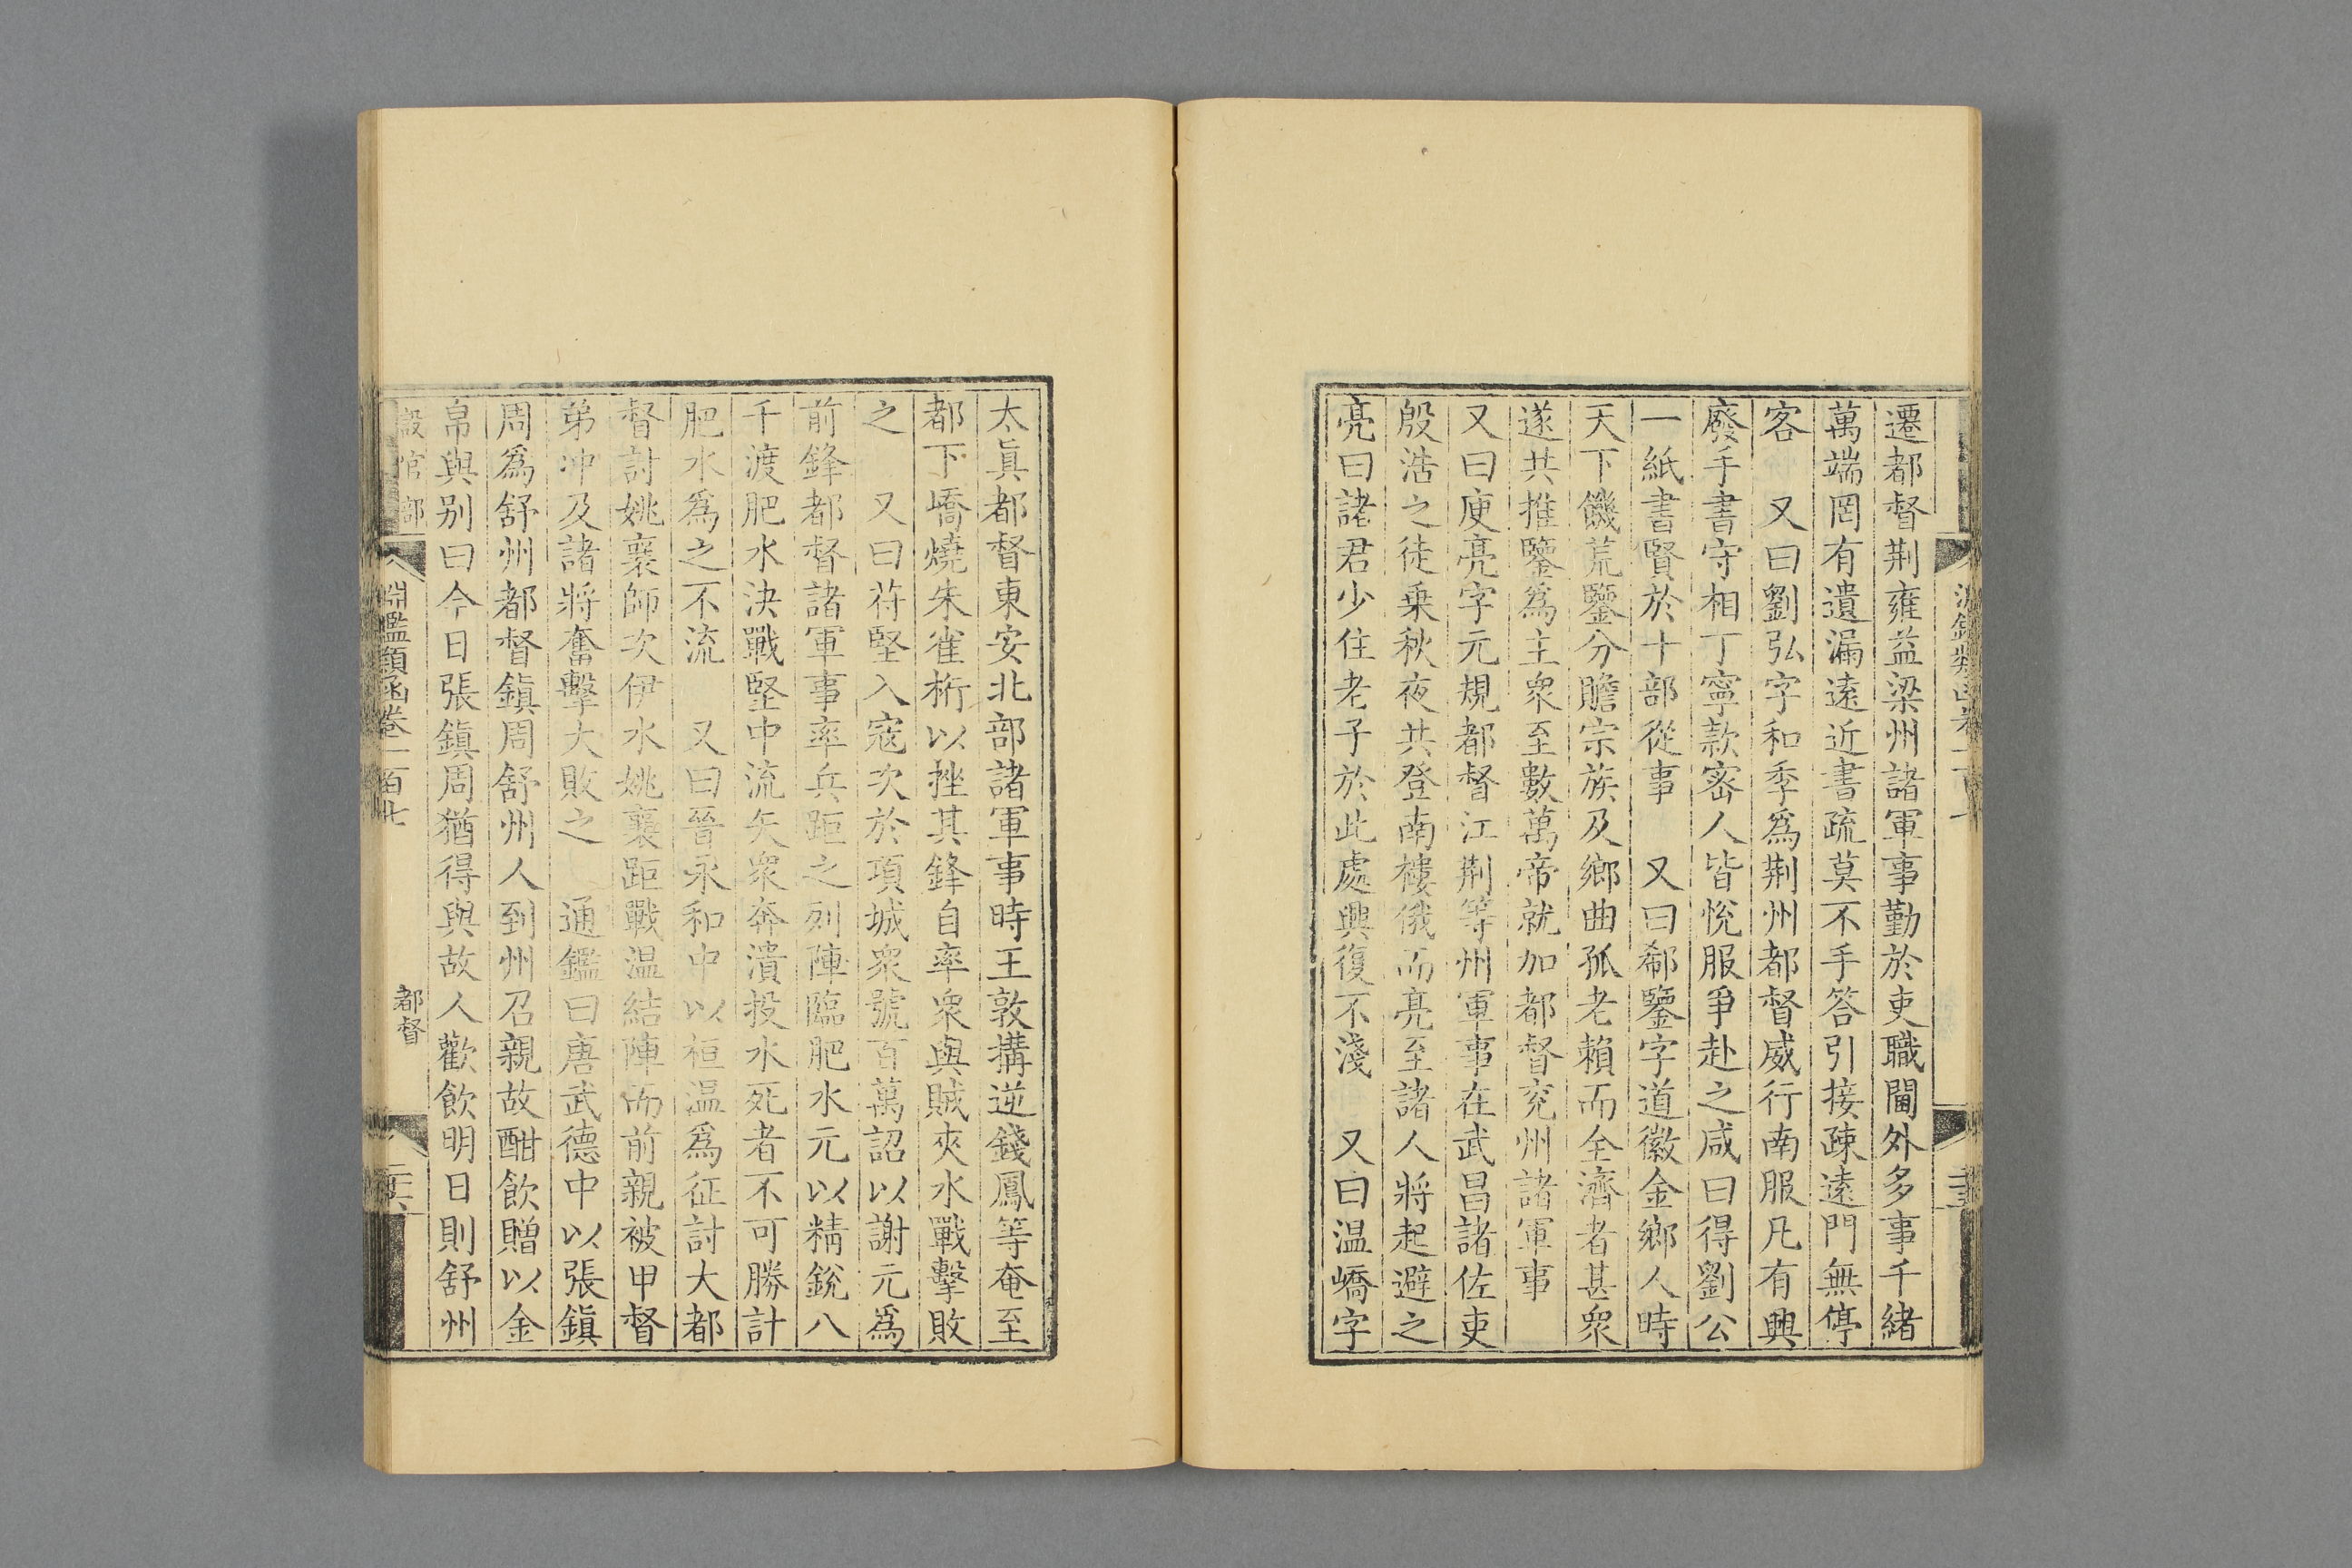 遷都督荆雍益梁州諸軍事勤於吏職閫外多事千緒
萬端罔有遺漏遠近書疏莫不手答引接疎遠門無停
客　又曰劉弘字和季爲荆州都督威行南服凡有興
廢手書守相丁寧款密人皆悅服爭赴之咸曰得劉公
一紙書賢於十部從事　又曰郗鑒字道徽金鄉人時
天下饑荒鑒分贍宗族及鄉曲孤老賴而全濟者甚衆
遂共推鑒爲主衆至數萬帝就加都督兖州諸軍事
又曰庾亮字元規都督江荆等州軍事在武昌諸佐吏
殷浩之徒乗秋夜共登南樓俄而亮至諸人將起避之
亮曰諸君少住老子於此處興復不淺　又曰温嶠字
太眞都督東安北部諸軍事時王敦搆逆錢鳳等奄至
都下嶠燒朱雀桁以挫其鋒自率衆與賊夾水戰擊敗
之　又曰苻堅入寇次於項城衆號百萬詔以謝元爲
前鋒都督諸軍事率兵距之列陣臨肥水元以精銳八
千渡肥水決戰堅中流矢衆奔潰投水死者不可勝計
肥水爲之不流　又曰晉永和中以桓温爲征討大都
督討姚襄師次伊水姚襄距戰温結陣而前親被甲督
弟冲及諸將奮擊大敗之　通鑑曰唐武德中以張鎮
周爲舒州都督鎮周舒州人到州召親故酣飲贈以金
帛與别曰今日張鎮周猶得與故人歡飲明日則舒州
設官部
淵鑑類函卷一百七
都督
二六